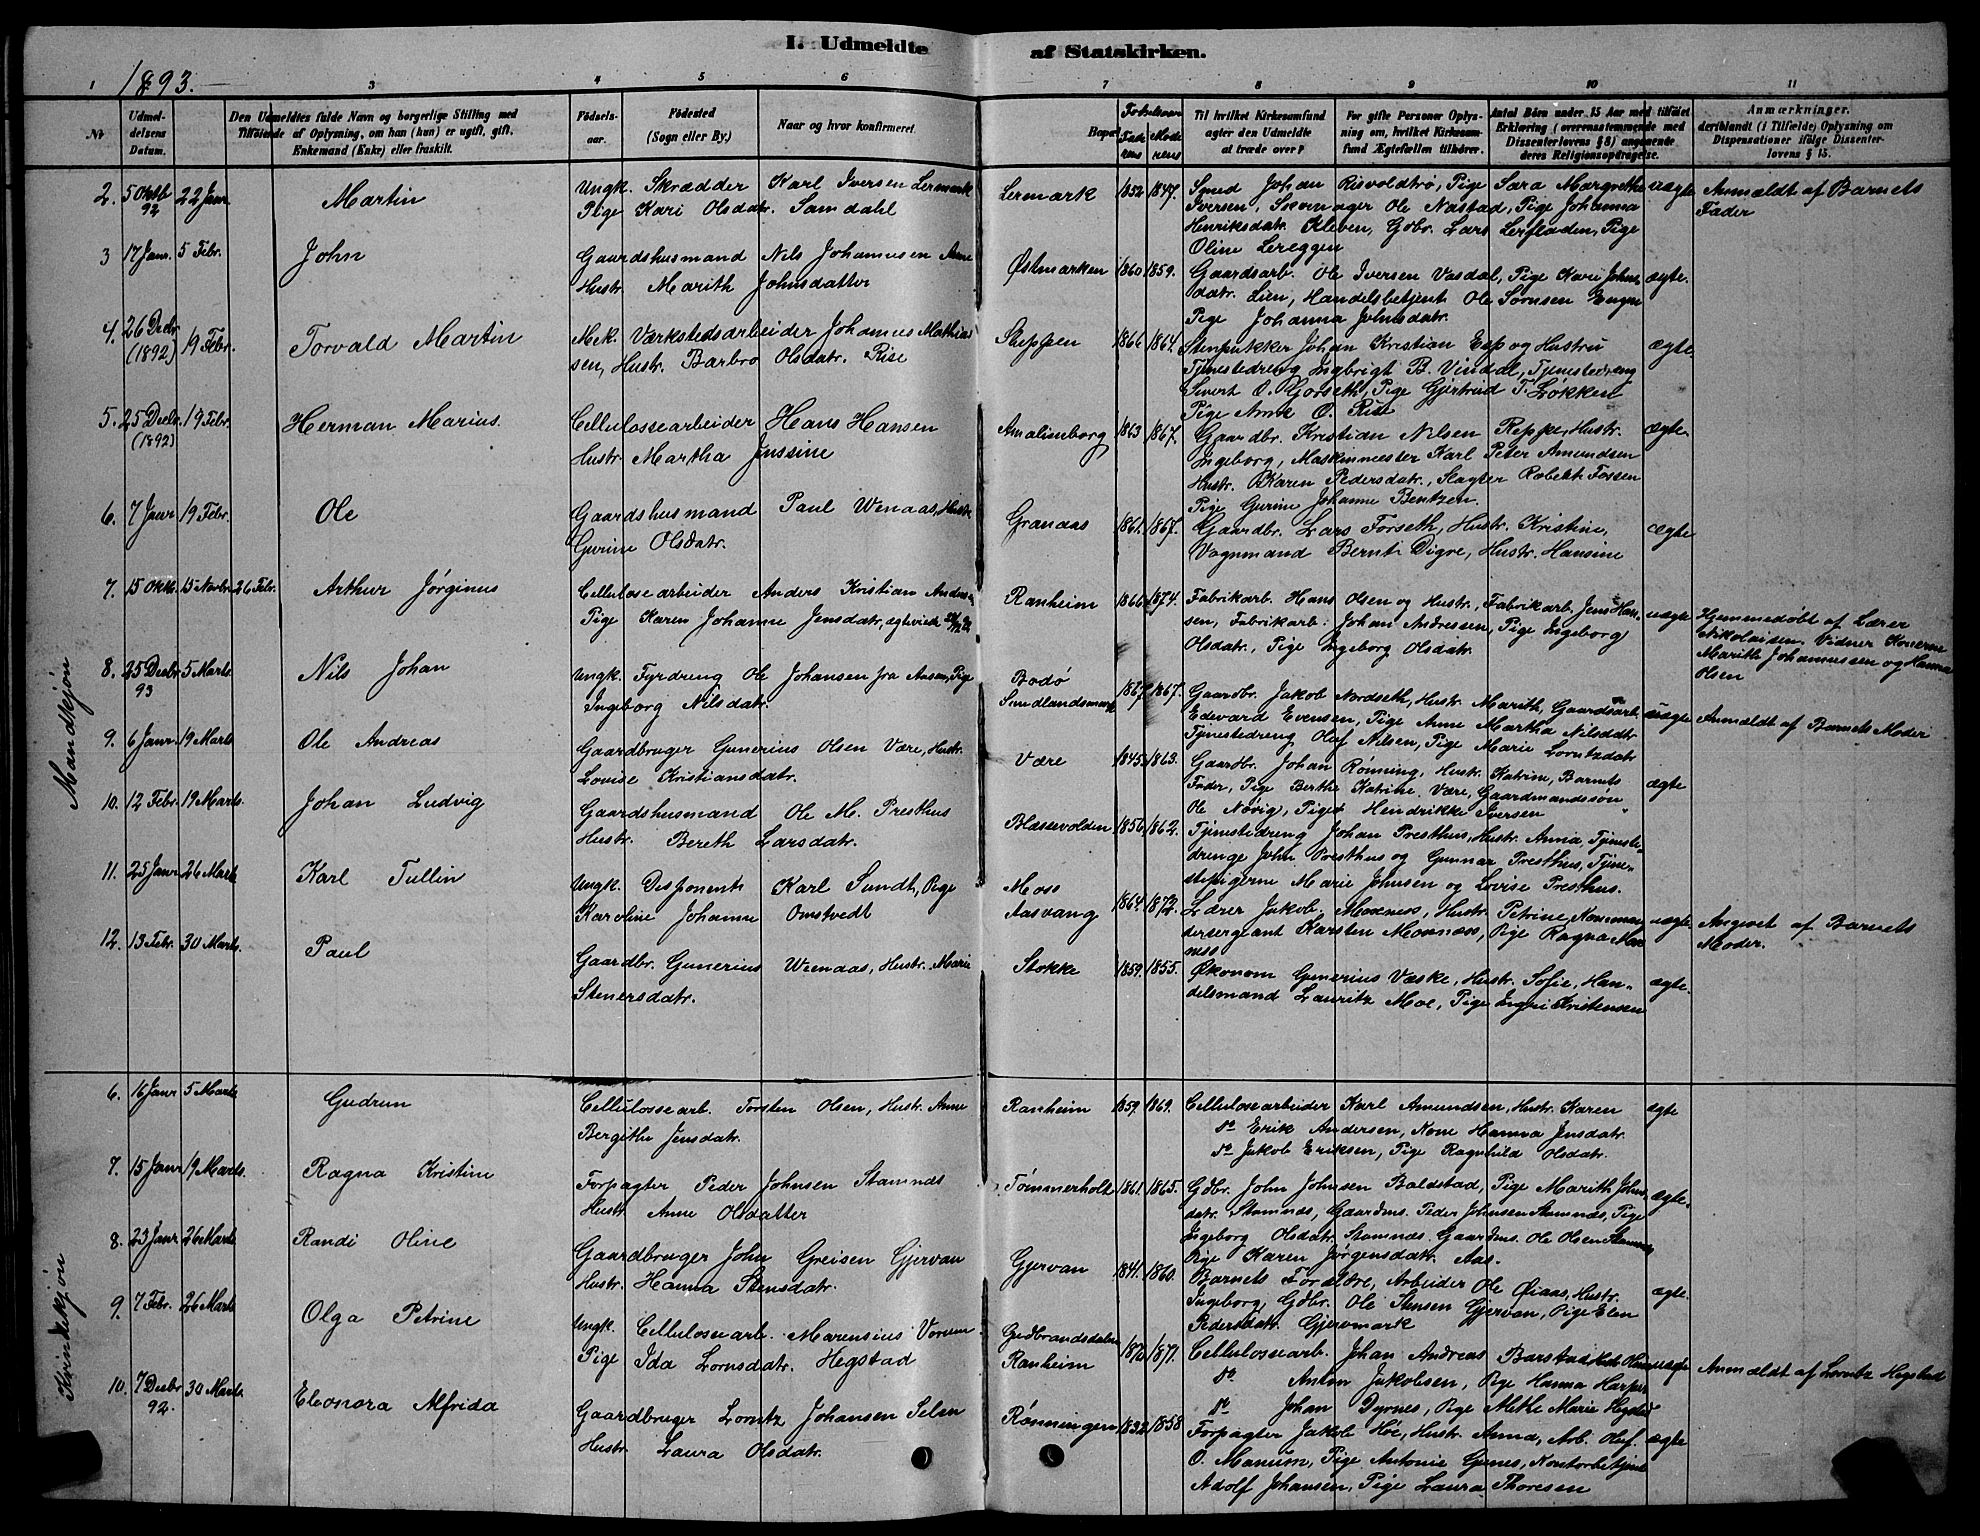 I. Udmeldte af Statskirken.
1893.
1 3 4 5 6 7 8 9 10 11
№ Udmeldelsens Datum. Den Udmeldtes fulde Navn og borgerlige Stilling med Tilføiende af Oplysning, om han (hun) er ugift, gift, Enkemand (Enke) eller fraskilt. Fødselsaar. Fødested (Sogn eller By.) Naar og hvor konfirmeret. Bopæl Faderens Moderens Til hvilket Kirkesamfund agter den Udmeldte at træde over? For gifte Personer Oplysning om, hvilket Kirkesamfund Ægtefællen tilhører. Antal Børn under 15 Aar med tilføiet Erklæring (overensstemmende med Dissenterlovens § 8) angaaende deres Religionsopdragelse. Anmærkninger. deriblandt (i Tilfælde) Oplysning om Dispensationer ifølge Dissenterlovens § 15.
Mandkjøn
2. 5 Oktb 92 22 Janr. Martin
Ungk. Skrædder Karl Iversen Lermark
Pige Kari Olsdatr. Samdahl
Lermark 1852 1847.
Smed Johan Risvoldtrø, Pige Sara Margrethe
Iversen, Skomager Ole Næstad, Pige Johanna
Henriksdatr. Kleven, Gdbr. Lars Lerfladen, Pige
Oline Lereggen
uægte Anmældt af Barnets
Fader
3 17 Janr. 5 Febr. John
Gaardshusmand Nils Johannesen Anne
Hustr. Marith Johnsdatter
Østmarken 1860 1859.
Gaardsarb. Ole Iversen Vasdal, Pige Kari Johns
datr. Lien, Handelsbetjent Ole Sørnsen Engen
Pige Johanna Johnsdatr.
ægte.
4. 26 Decbr (1892) 19 Febr. Torvald Martin
Mek. Værkstedsarbeider Johannes Mathias
sen, Hustr. Barbro Olsdatr. Rise
Steppen 1866 1864.
Stenpukker Johan Kristian Esp og Hustru
Tjenestedreng Ingbrigt B. Vindal, Tjenestedreng
Sivert O. Gorseth, Pige Gjertrud T. Løkken
Pige Anne O. Rise
ægte
5. 25 Decbr (1892) 19 Febr. Herman Marius.
Cellulossearbeider Hans Hansen
Hustr. Martha Jenssine
Amalienborg 1863 1867.
Gaardbr. Kristian Nilsen Reppe, Hustr.
Ingeborg, Maskinmester Karl Peter Amundsen
Hustr. Karen Pedersdatr., Slagter Robekk Fossen
Pige Gurine Johanne Bentzen.
ægte.
6. 7 Janr 19 Febr. Ole
Gaardshusmand Paul Wenaas, Hustr.
Gurine Olsdatr.
Granaas 1861. 1867.
Gaardbr. Lars Forseth, Hustr. Kristine,
Vognmand Bernt Digre, Hustr. Hansine
ægte
7. 15 Oktb. 15 Novbr. 26 Febr. Arthur Jørginus
Cellulosearbeider Anders Kristian Anders
Pige Karen Johanne Jensdatr, ægteviede
Ranheim 1866 1874.
Fabrikarb. Hans Olsen og Hustr., Fabrikarb. Jens Han
sen, Fabrikarb. Johan Andressen, Pige Ingeborg
Olsdatr, Pige Ingeborg Olsdatr.
uægte Hjemmedøbt af Lærer
Nikolaisen. Vidner Konerne
Marith Johannessen og Hanna
Olsen
8. 25 Decbr 93 5 Marts. Nils Johan
Ungk. Fyrdreng Ole Johansen fra Aasen, Pige
Ingeborg Nilsdatr.
Bodø
Sundlandsmark 1867. 1867.
Gaardbr. Jakob Nordseth, Hustr. Marith, Gaardsarb.
Edevard Evensen, Pige Anne Martha Nilsdatr
Tjenestedreng Oluf Nilsen, Pige Marie Lorntzdatr
uægte Anmældt af Barnets Moder
9. 6 Janr. 19 Marts Ole Andreas
Gaardbruger Gunerius Olsen Være, Hustr.
Lovise Kristiansdatr.
Være 1845 1863.
Gaardbr. Johan Rønning, Hustr. Katrine, Barnets
Fader, Pige Berthe Katrine Være, Gaardmandssøn
Ole Nøvig, Pige Hendrikke Iversen
ægte
10. 12 Febr. 19 Marts. Johan Ludvig
Gaardshusmand Ole M. Presthus
Hustr. Bereth Larsdatr.
Blæssevolden 1856 1862.
Tjenestedreng Johan Presthus, Hustr. Anna, Tjeneste
drenge John Presthus og Gunnar Presthus, Tjene
stepigerne Marie Johnsen og Lovise Presthus.
11. 25 Janr 26 Marts Karl Tullin
Ungk. Disponent Karl Sundt, Pige
Karoline Johanne Omstvedt
Moss
Aasvang 1864. 1872.
Lærer Jakob Moxness, Hustr. Petrine, Komman
dersergeant Karsten Moxnæss, Pige Ragna Mox
ness
uægte. Angivet af Barnets
Moder.
12. 13 Febr. 30 Marts. Paul
Gaardbr. Gunerius Wennaas, Hustr. Marie
Stenersdatr.
Stokke 1859. 1855.
Økonom Gunerius Væske, Hustr. Sofie, Han-
delsmand Lauritz Moe, Pige Ingri Kristensen
ægte.
Kvindekjøn
6. 16 Janr 5 Marts Gudrun
Cellulossearb. Torsten Olsen, Hustr. Anne
Bergithe Jensdatr.
Ranheim 1859. 1869.
Cellulosearbeider Karl Amundsen, Hustr. Karen
do Erik Andersen, Kone Hanna Jensdatr.
do Jakob Eriksen, Pige Ragnhild Olsdatr.
ægte
7. 15 Janr 19 Marts. Ragna Kristine
Forpagter Peder Johnsen Stamnes
Hustr. Anne Olsdatter
Tømmerholt 1861. 1865.
Gdbr. John Johnsen Boldstad, Pige Marith Johns
datr. Stamnes, Gaardms. Peder Johnsen Stamnes, Pige
Ingeborg Olsdatr. Stamnes, Gaardms. Ole Olsen Stamnes
Pige Karen Jørgensdatr. Aas.
ægte.
8. 23 Janr 26 Marts Randi Oline
Gaardbruger John Greisen Gjervan
Hustr. Hanna Stensdatr.
Gjervan 1841. 1860.
Barnets Forældre, Arbeider Ole Øiaas, Hustr.
Ingeborg, Gdbr. Ole Stensen Gjervan, Pige Elen
Pedersdatr. Gjervmark
ægte.
9. 7 Febr. 26 Marts Olga Petrine
Ungk. Cellulossearb. Marensius Vorum
Pige Ida Lornsdatr. Hegstad
Gudbrandsdalen
Ranheim 1871.
Cellulossearb. Johan Andreas Barstad
do Anton Jakobsen, Pige Hanna
do Johan Dyrnes, Pige Mette Marie Hegstad
uægte Anmældt af Lorntz Hegstad
10. 7 Decbr 92. 30 Marts. Eleonora Alfrida
Gaardbruger Lorntz Johansen Selen
Hustr. Laura Olsdatr.
Rønningen 1832 1858
Forpagter Jakob Høe, Hustr. Anna, Arb. Oluf
O. Manum, Pige Antonie Grnes, Kontorbetjent
Adolf Johansen, Pige Laura Thoresen
ægte